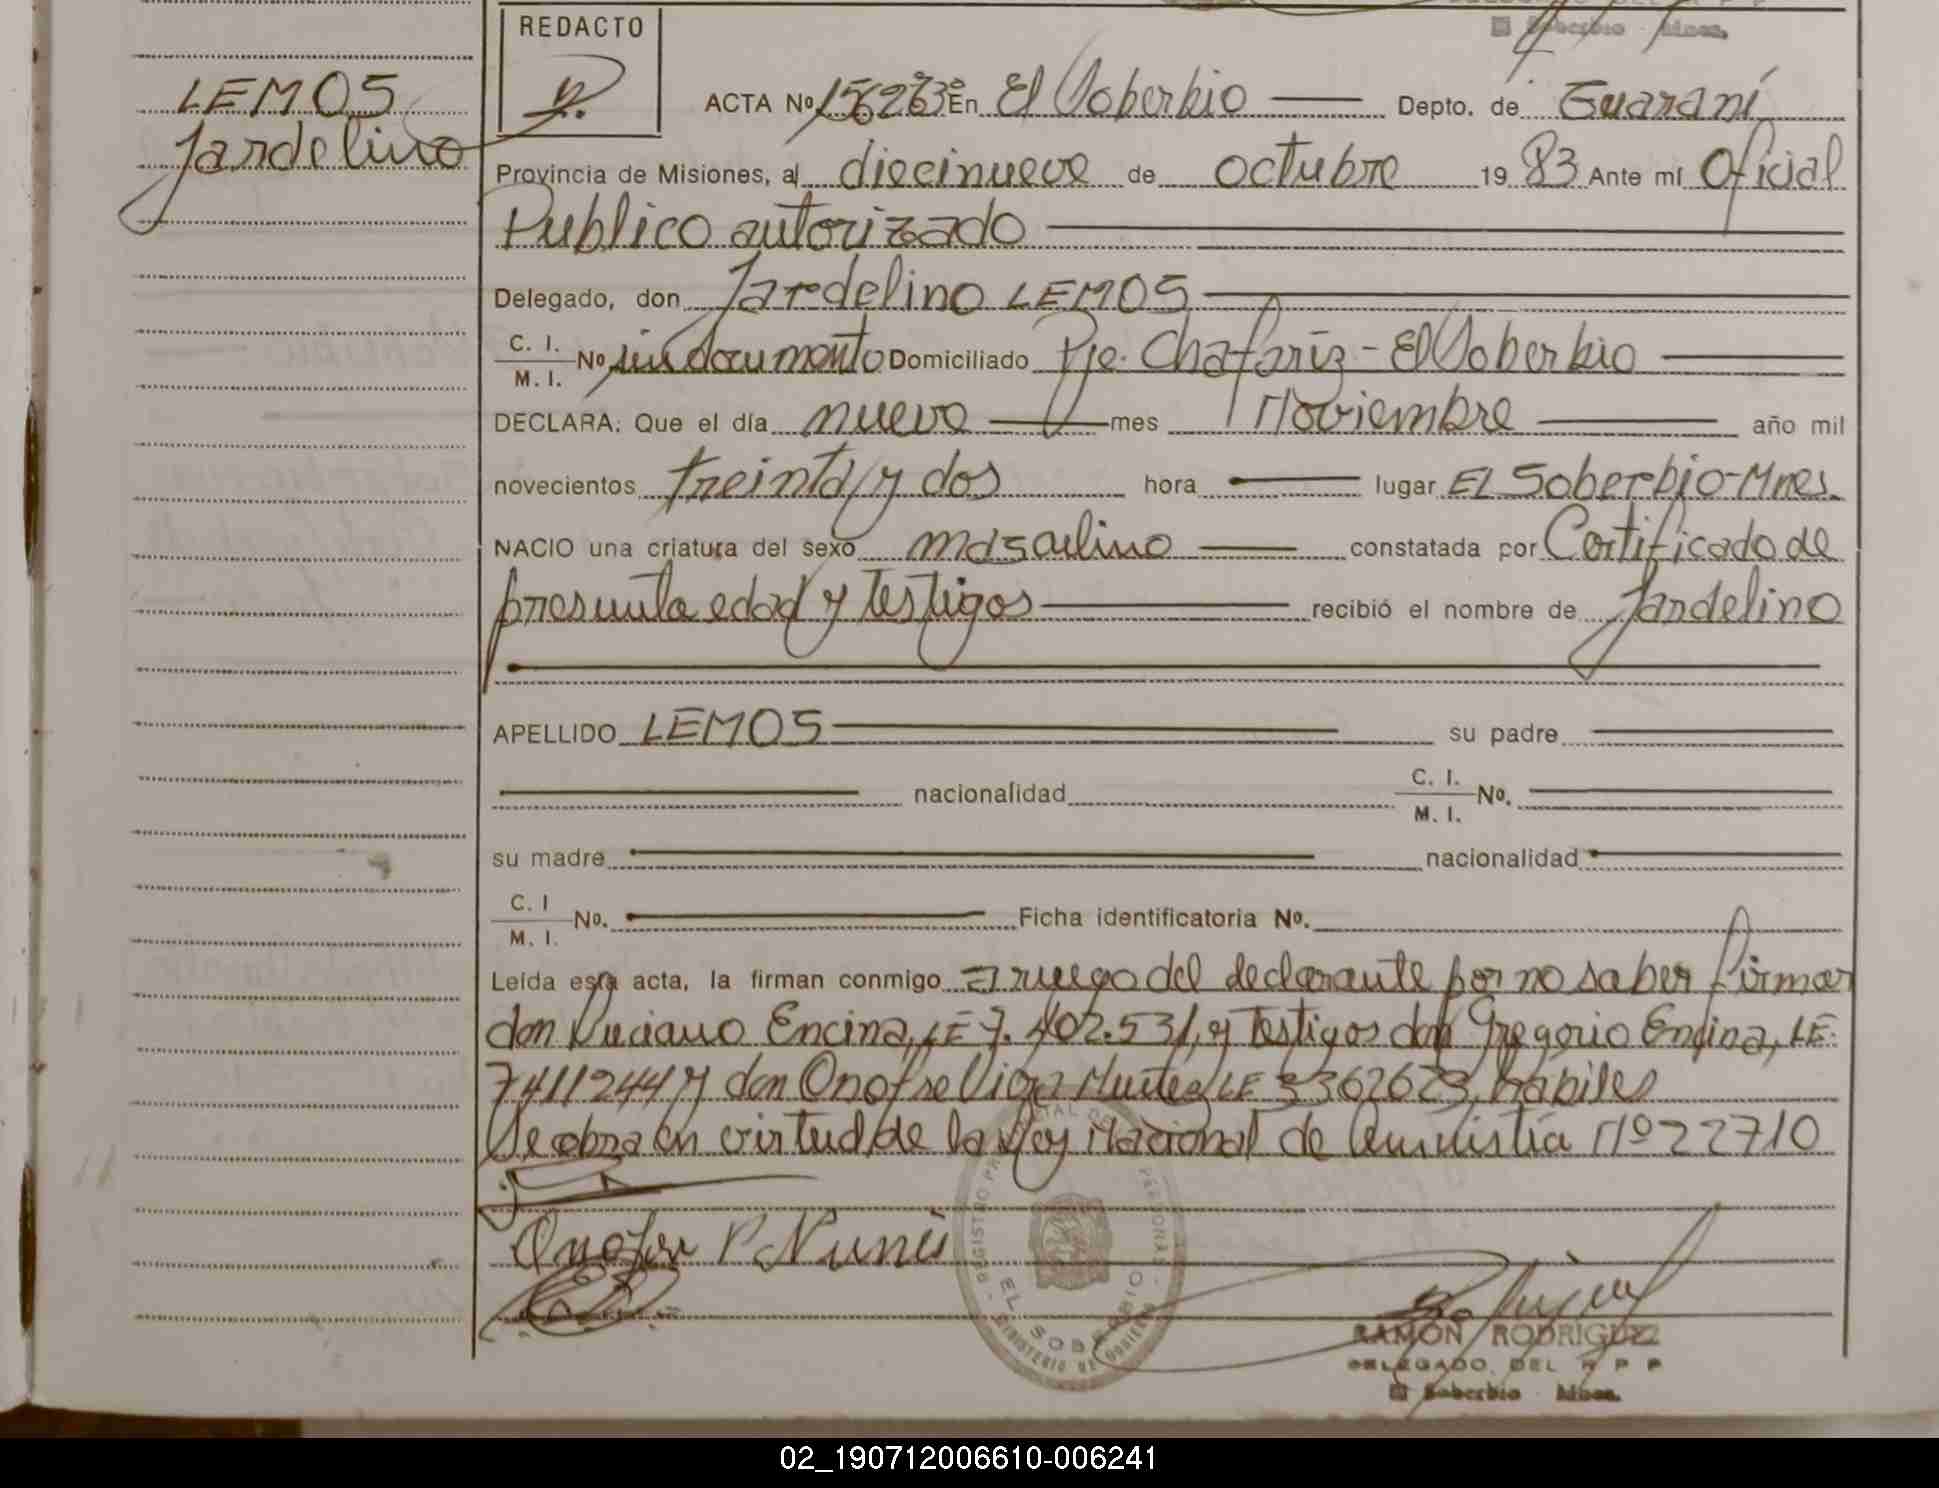 REDACTO
El Soberbio - Mnes.
LEMOS
Jardelino
ACTA Nº En El Soberbio Depto. de Guaraní
Provincia de Misiones, al diecinueve de octubre 19 83 Ante mí Oficial
Publico autorizado
Delegado, don Jardelino LEMOS
C. I.
M. I. Nº sin documento Domiciliado Pje. Chafariz - El Soberbio
DECLARA: Que el día nueve mes Noviembre año mil
novecientos treinta y dos hora lugar El Soberbio-Mnes.
NACIO una criatura del sexo masculino constatada por Certificado de
presunta edad y testigos recibió el nombre de Jardelino
APELLIDO LEMOS su padre
nacionalidad C. I.
M. I. Nº.
su madre nacionalidad
C. I
M. I. Nº. Ficha identificatoria Nº.
Leída esta acta, la firman conmigo a ruego del declarante por no saber firmar
don Luciano Encina, LE 7.402.531, y testigos don Gregorio Encina, LE.
7411244 y don Onofre LE 3362623, habiles
Se obra en virtud de la Ley Nacional de Amnistía Nº 22710
Onofre P. Nunes
EL SOBERBIO
RAMON RODRIGUEZ
DELEGADO DEL R P P
El Soberbio - Mnes.
02_190712006610-006241